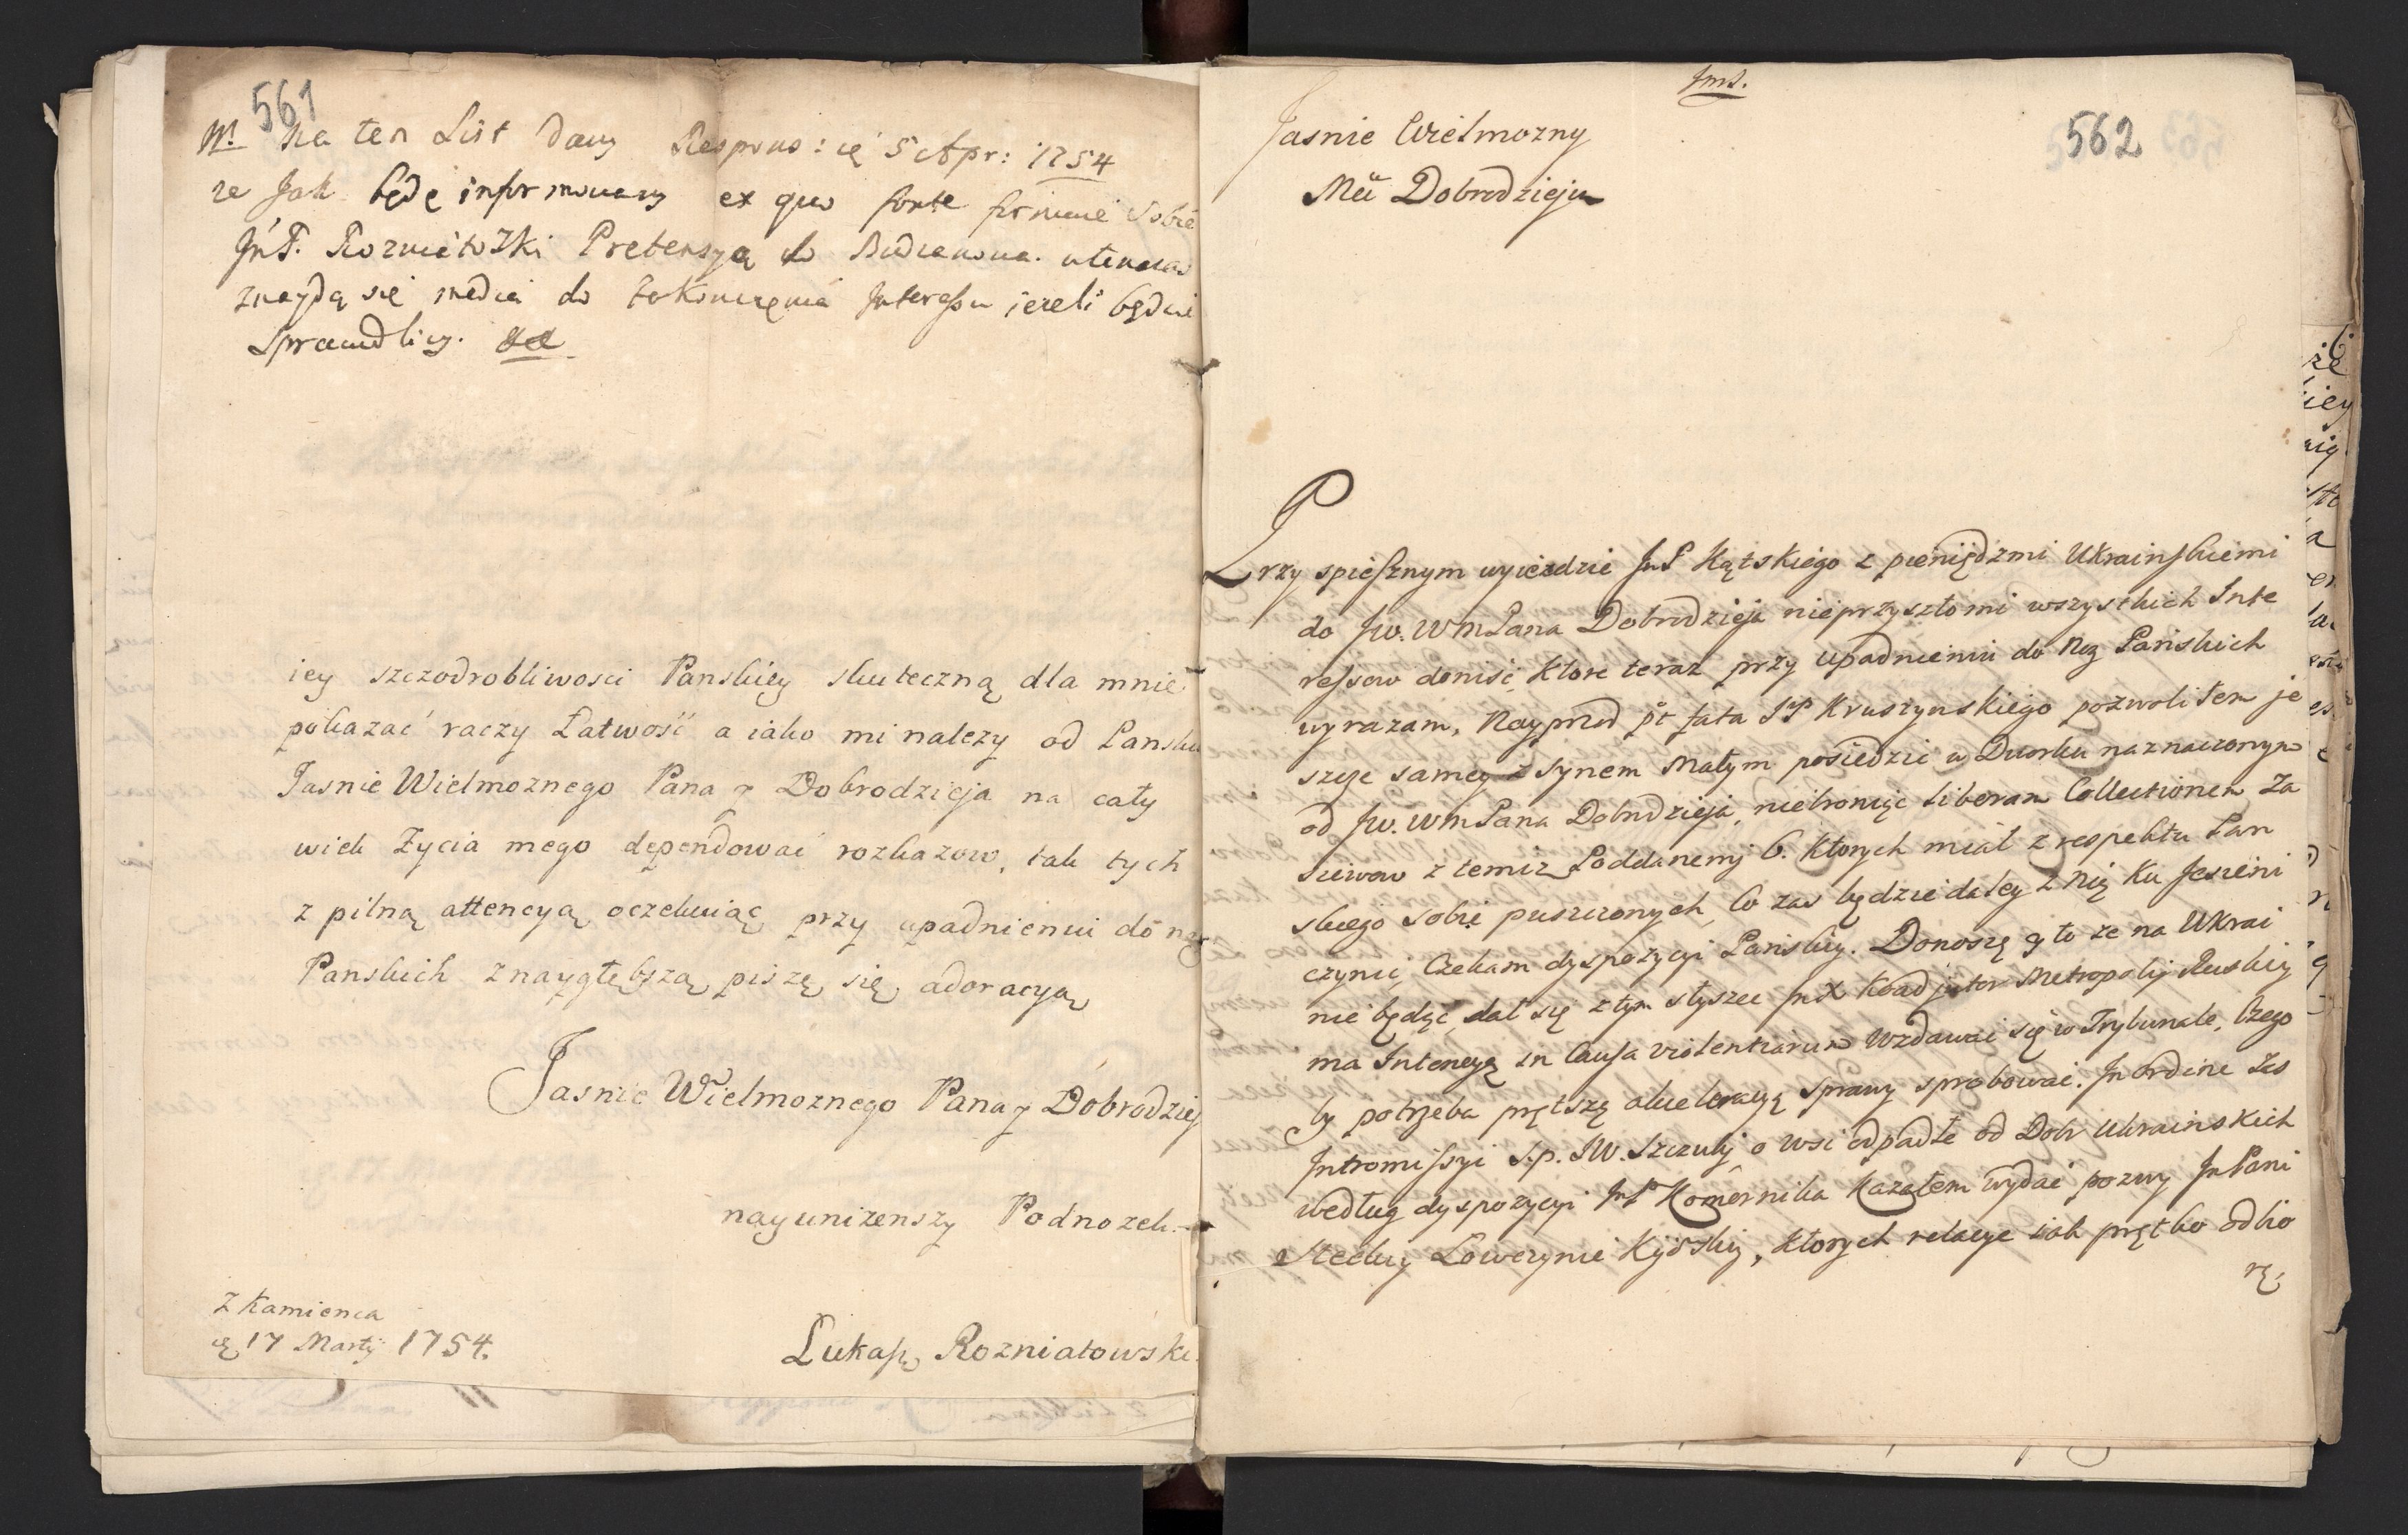 561
Na ten List dany Respons: 5 Apr: 1754
ze Jak będę informowany ex quo fonte formuie Sobie
Rozniatowski Pretensyą do
znaydą się media do Interessu ieżeli będzie
Sprawdliwy.
iey szczodrobliwosci Panskiey skuteczną dla mnie
pokazać raczy Łatwość a iako mi nalezy od Pansk
Jasnie Wielmoznego Pana y Dobrodzieja na cały
wiek Zycia mego dependowai rozkazow, tak tych
z pilną attencyą oczekuiąc przy upadnieniu do nog
Panskich z naygłębszą piszę się adoracyą
Jasnie Wielmoznego Pana y Dobrodziej
nayunizenszy Podnozek
z Kamienca
17 Martij 1754.
Lukasz Rozniatowski
562
Jasnie Wielmozny
Mći Dobrodzieju
Przy spiesznym wyiezdzie JmP Kątskiego z pieniędzmi Ukrainskiemi
do Jw. WmPana Dobrodzieja nieprzyszło mi wszystkich Inte
ressow doniść, ktore teraz przy upadnieniu do Nog Pańskich
wyrazam, Nayprzod Kruszynskiego pozwolilem je
szcze samey z synem małym posiedzic w Dworku naznaczonym
od Jw. WmPana Dobrodzieja, niebroniąc liberam Collectionem Za
siewow z temiz Poddanemi 6. ktorych miał z respektu Pan
skiego sobie puszczonych, Co zas będzie daley z nią ku Jesieni
czynić, Czekam dyspozycyi Pańskiey. Donoszę y to ze na Ukrai
nie będąc, dał się z tym słyszec JmX Koadjutor Metropolij Ruskiey
ma Intencyą in Causa violentiarum wzdawai się w Trybunale, Czego
by potrzeba prętszą sprawy sprobowai. In ordine Zas
Intromissyi s.p. JW. Szczuki o wsi odpadłe od Dobr Ukrainskich
według dyspozycyi JmP Komornika Kazałem wydai pozwy JmPani
Steckiy Łowczynie Kijowskiy, ktorych relacye iak prętko odbio
rę,